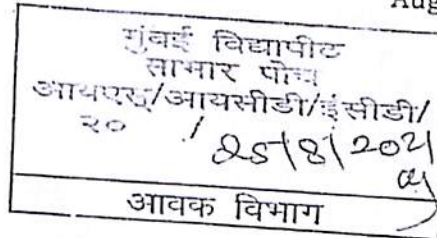 Aug
मुंबई विद्यापीठ
साभार पोच
आयएस/आयसीडी/ईसीडी/
२० / 25/8/2021
आवक विभाग